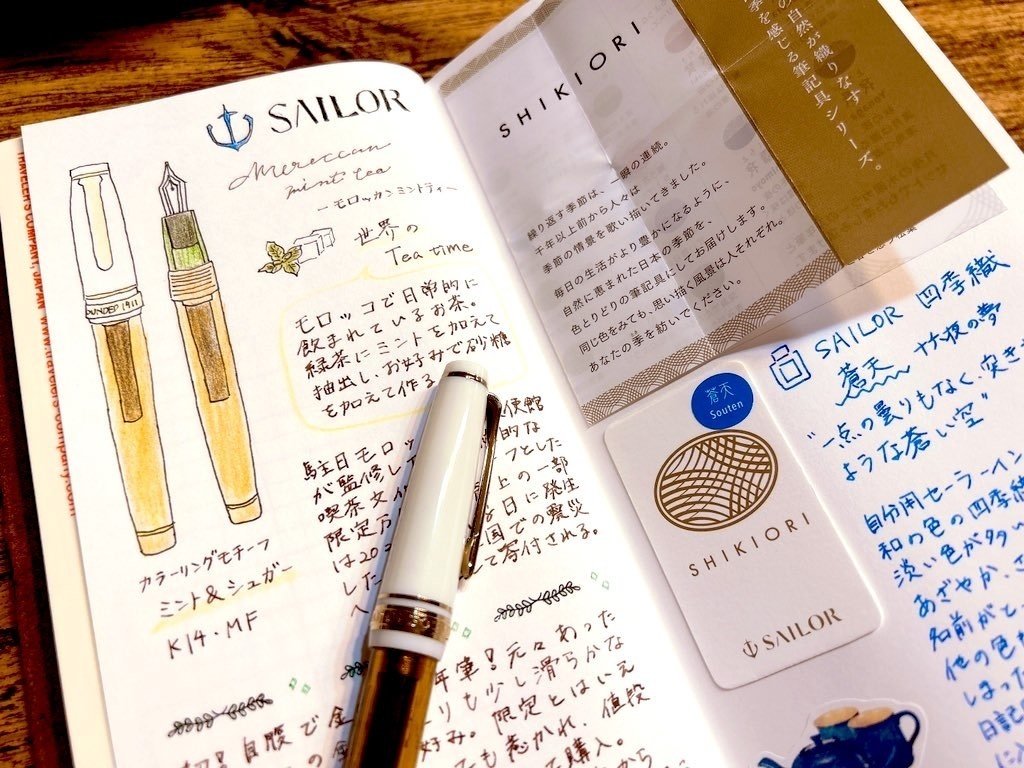 TRAVELER'S COMPANY, JAPAN www.travelers-company.com
SAILOR
Moroccan
mint tea
ーモロッカンミントティー
世界の
Tea time
モロッコで日常的に
飲まれているお茶。
緑茶にミントを加えて
抽出し、お好みで砂糖
を加えて作る
FOUNDED 1911
カラーリングモチーフ
ミント&シュガー
K14・MF
駐日モロッ
が監修し
喫茶文化
限定万
は20
した
へ
使館
的な
フとした
上の一部
日に発生
国での震災
して寄付される。
自腹で
年筆!元々あった
りも少し滑らかな
好み。限定とはいえ
も惹かれ、値段
て購入。
SHIKIORI
の自然が織りなす
季を感じる筆記具シリーズ。
繰り返す季節は、一瞬の連続。
千年以上前から人々は
季節の情景を歌い描いてきました。
毎日の生活がより豊かになるように、
自然に恵まれた日本の季節を、
色とりどりの筆記具にしてお届けします。
同じ色をみても、思い描く風景は人それぞれ。
あなたの季を紡いでください。
蒼天
Souten
SHIKIORI
SAILOR
SAILOR 四季織
蒼天 十六夜の夢
"一点の曇りもなく、突き
ような蒼い空"
自分用セーラーイン
和の色の四季織
淡い色が多い
あざやか、さ
名前がと
他の色も
しまった
日記
に入